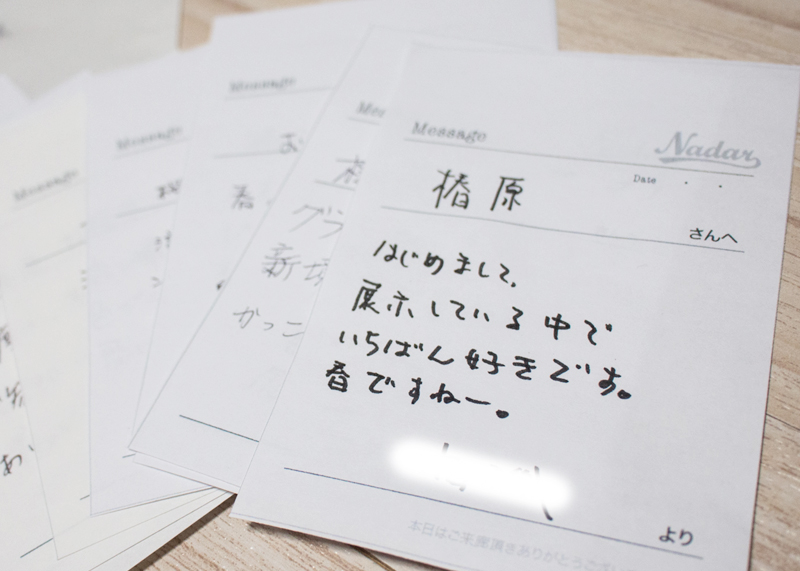 Message
Nadar
Date . .
椿原
さんへ
はじめまして、
展示している中で
いちばん好きです。
春ですねー。
より
本日はご来廊頂きありがとうござい
Message
グラ
新
かっこ
Message
お
春
Message
Message